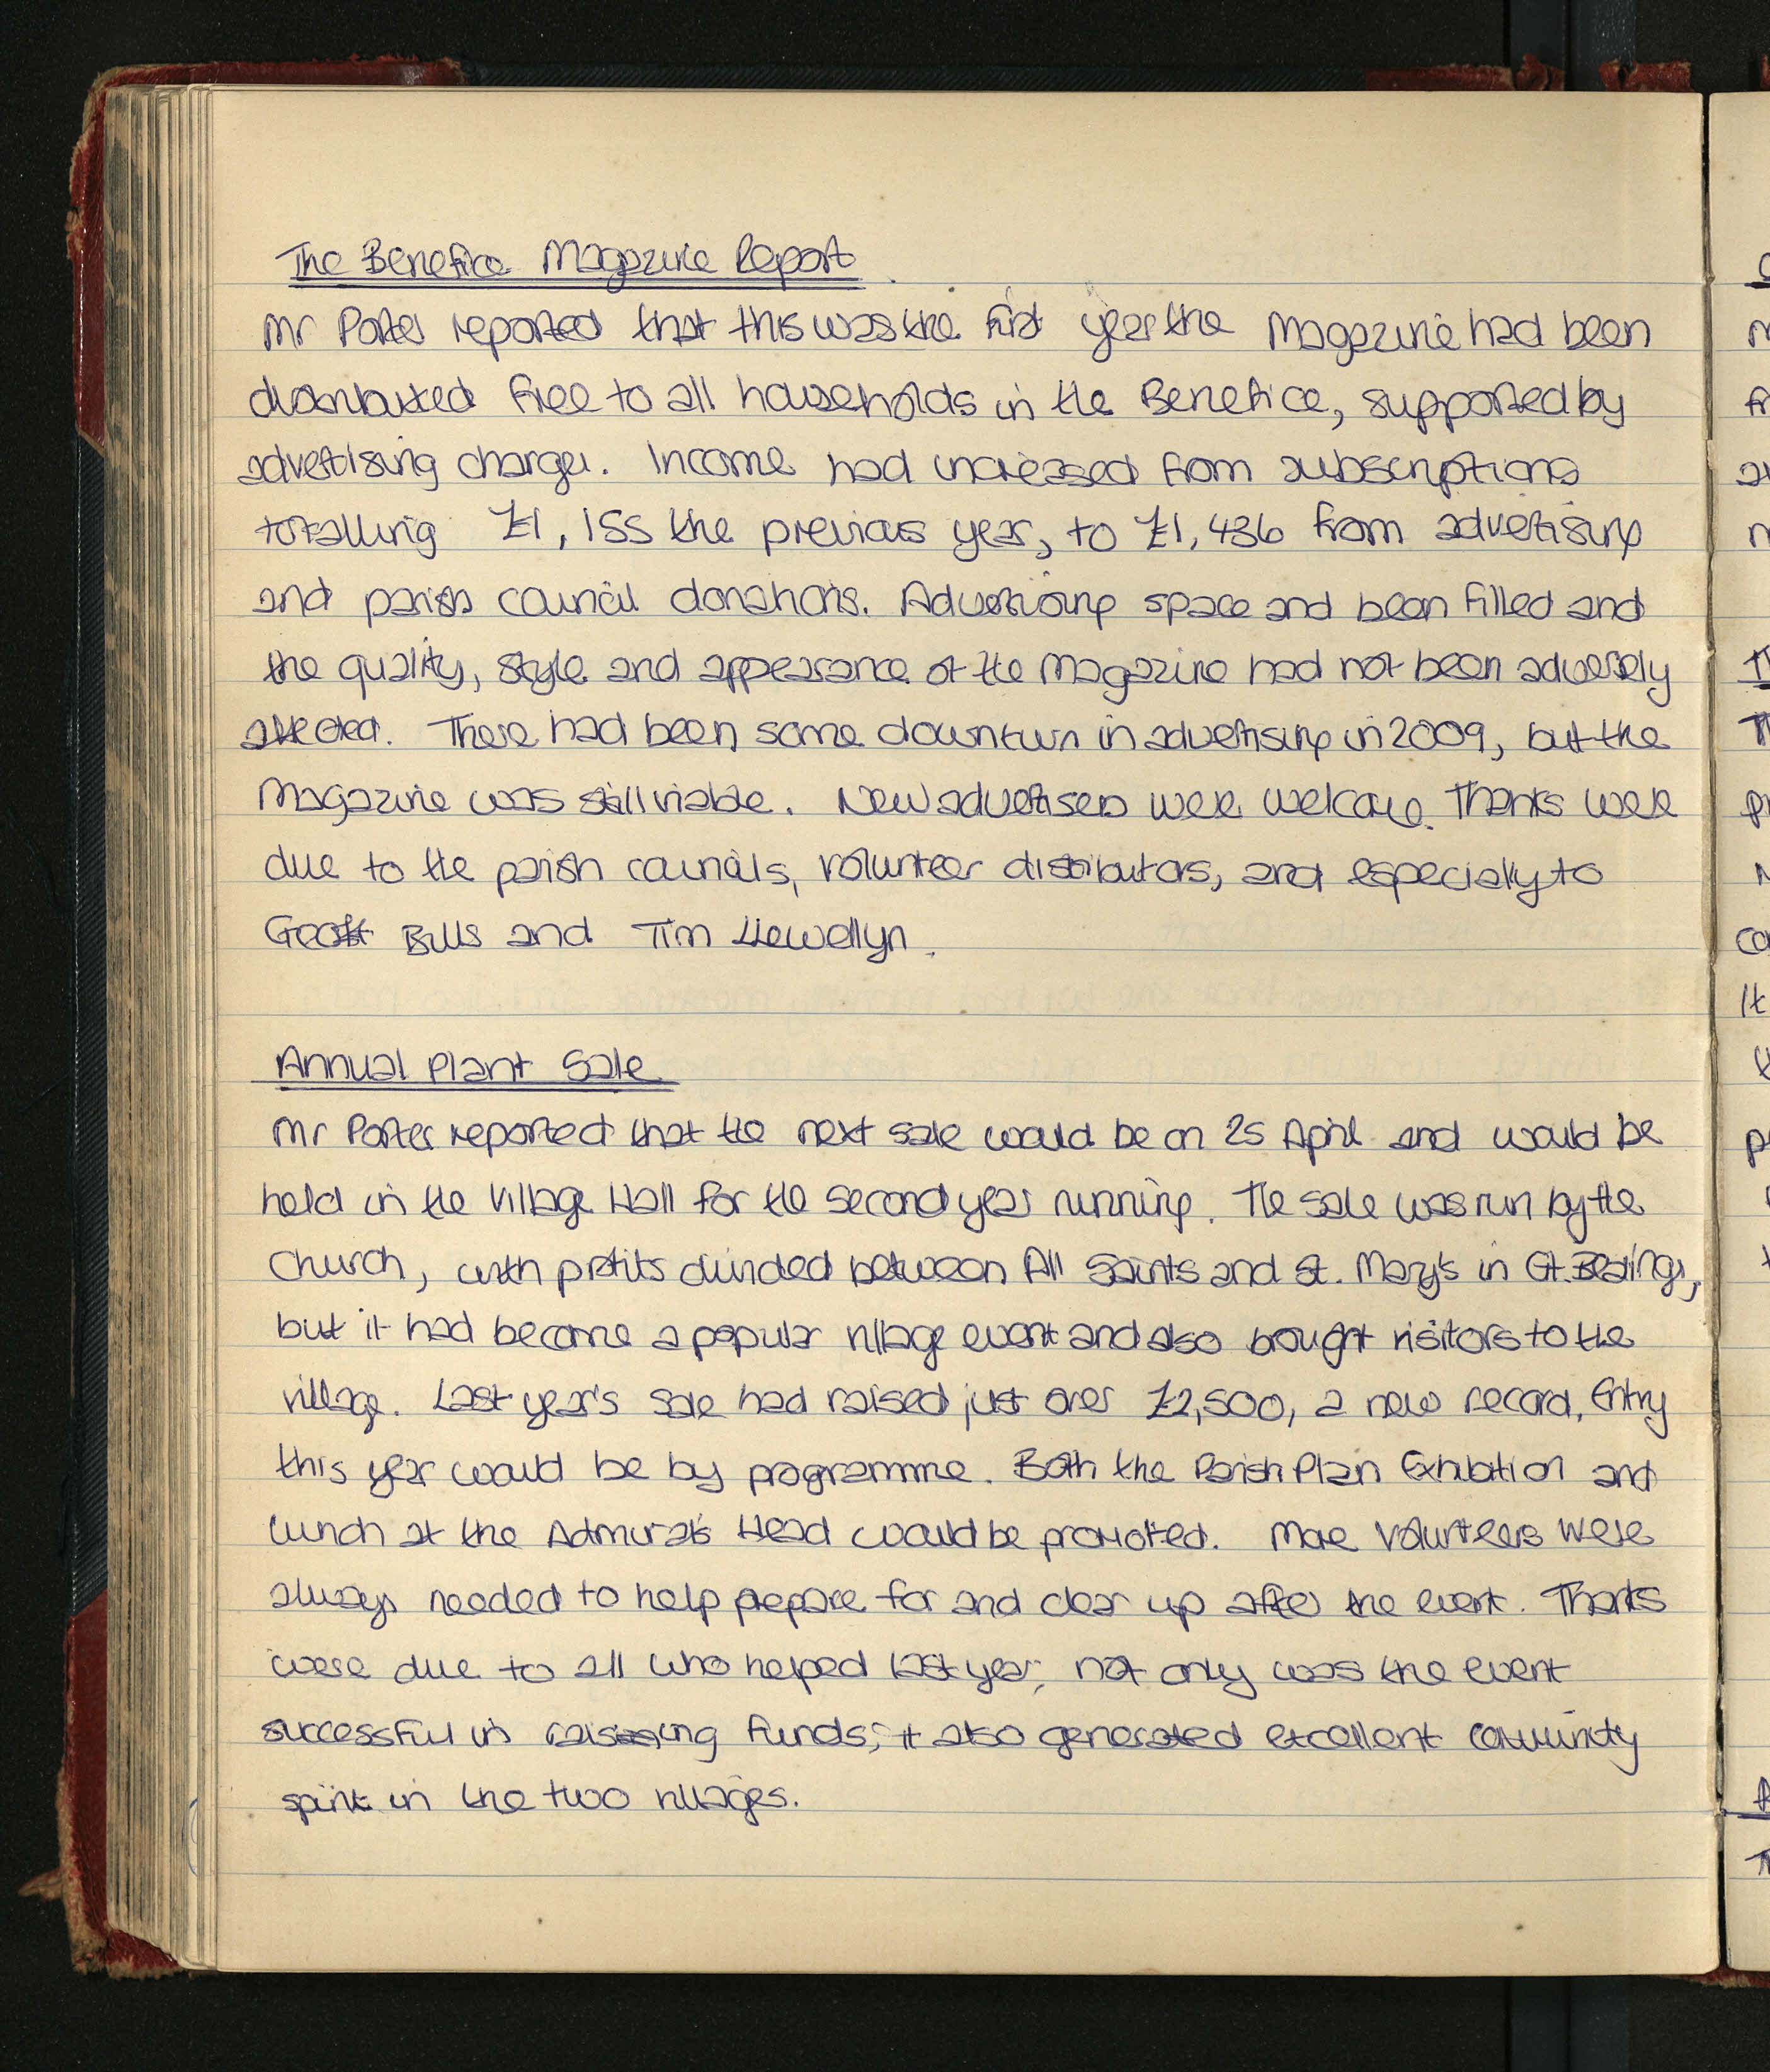 The Benefice Magazine Report
Mr Porter reported that this was the first year the Magazine had been
distributed free to all households in the Benefice, supported by
advertising charges. Income had increased from subscriptions
totalling £1,155 the previous year, to £1,436 from advertising
and parish council donations. Advertising space and been filled and
the quality, style and appearance of the Magazine had not been adversely
affected. There had been some downturn in advertising in 2009, but the
Magazine was still viable. New advertisers were welcome. Thanks were
due to the parish councils, volunteer distributors, and especially to
Geoff Bills and Tim Llewellyn.
Annual Plant Sale
Mr Porter reported that the next sale would be on 25 April and would be
held in the Village Hall for the second year running. The sale was run by the
Church, with profits divided between All Saints and St. Mary's in Gt. Bealings,
but it had become a popular village event and also brought visitors to the
village. Last year's sale had raised just over £2,500, a new record. Entry
this year would be by programme. Both the Parish Plan Exhibition and
lunch at the Admiral's Head would be promoted. More volunteers were
always needed to help prepare for and clear up after the event. Thanks
were due to all who helped last year; not only was the event
successful in raising funds; it also generated excellent community
spirit in the two villages.